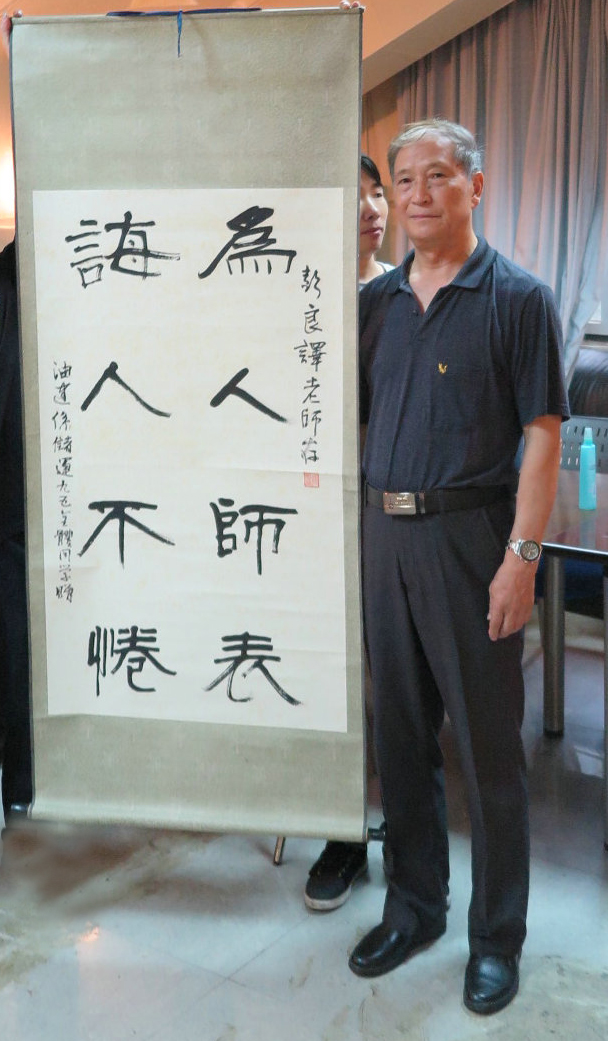 彭良譯老師存
為人師表
誨人不惓
油建係儲運九五全體同学贈